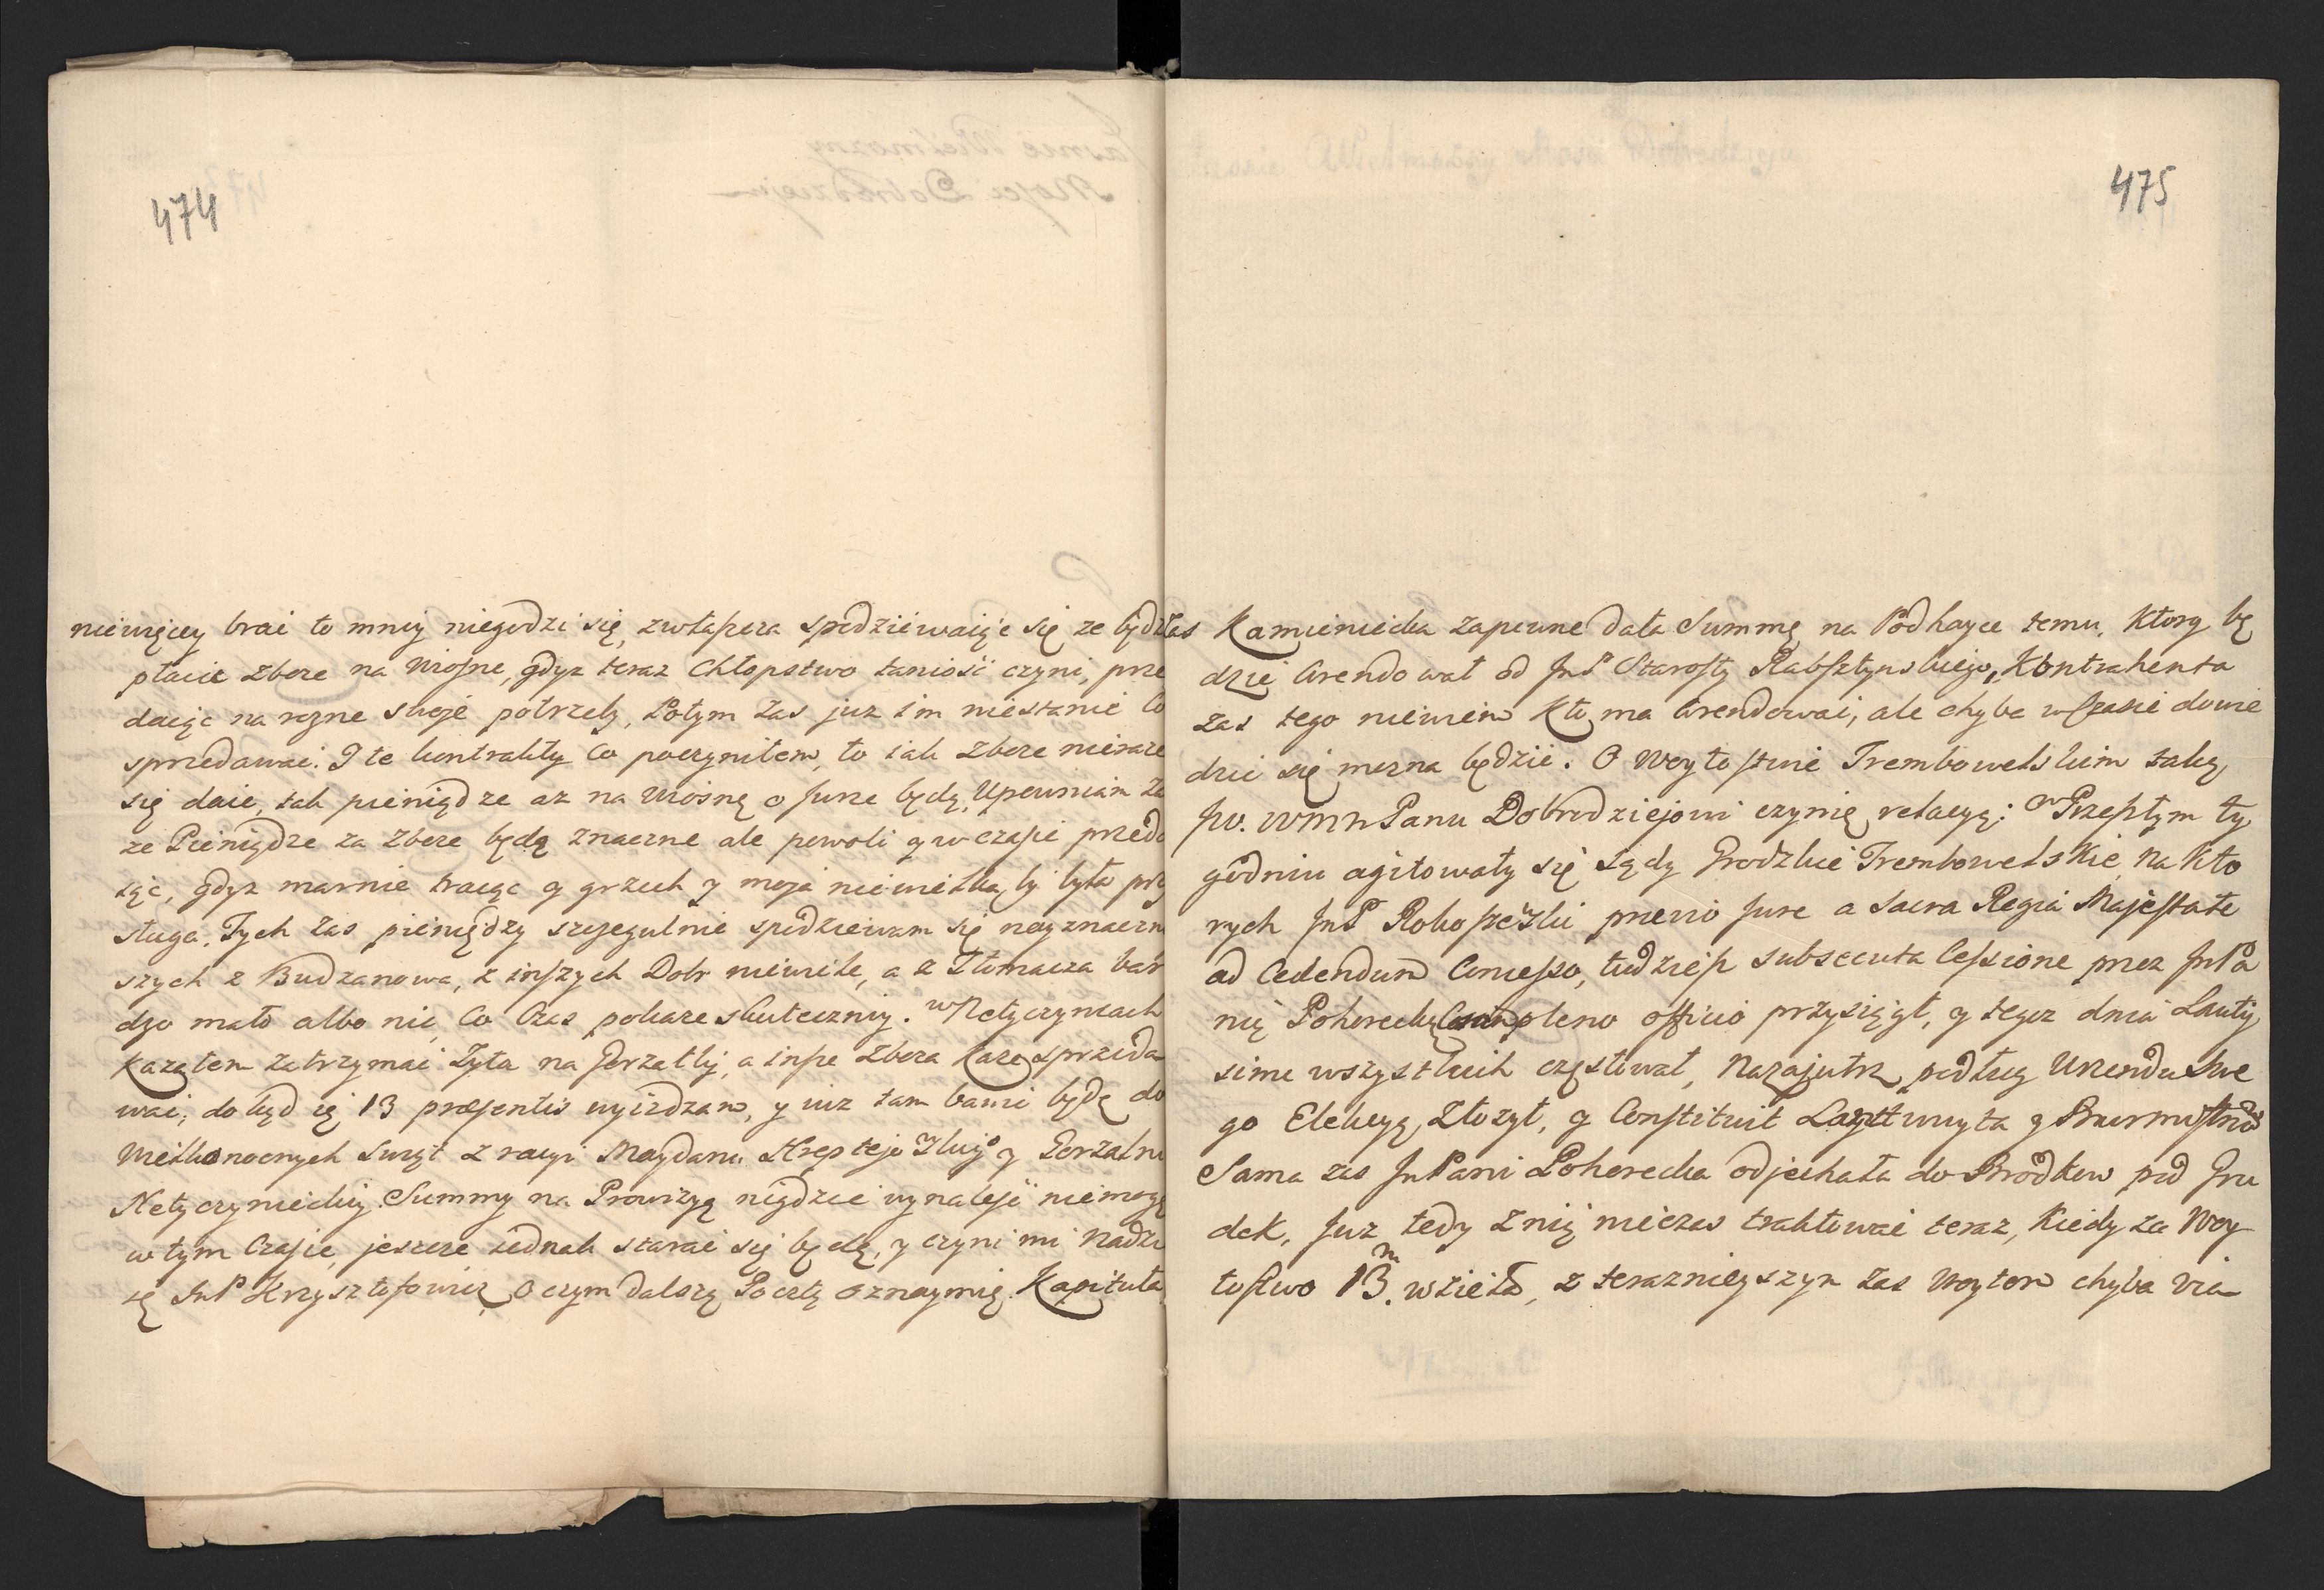 474
niewięcey brać to mniey niegodzi się, zwłaszcza spodziewaiąc się ze będą
płacić zboze na Wiosnę, gdyz teraz Chłopstwo taniość czyni, prze
daiąc na rozne swoje potrzeby, Potym zas juz im niestanie Co
sprzedawać. I te kontrakty Co poczyniłem, to iak zboze nieraze
się daie, tak pieniądze az na Wiosnę o Jurze będą, Upewniam Za
ze Pieniądze za zboze będą znaczne ale powoli y w czasie przeda
iąc, gdyz marnie tracąc y grzech y moja niewielka by była przy
sługa. Tych zas pieniędzy szczegulnie spodziewam się nayznaczni
szych z Budzanowa, z inszych Dobr niewiele, a z Tłomacza bar
dzo mało albo nic, Co Czas pokaze skuteczniey. w Netyczyncach
Kazałem zatrzymać Zyta na Gorzałkę, a insze zboza kazę sprzeda
wać; dokąd ię 13 præsentis wyiezdzam, y iuz tam bawić będę do
Wielkonocnych Swiąt z racyi Maydanu y Gorzalni
Netyczynieckiey. Summy na Prowizyą nigdzie wynaleść niemogę
w tym Czasie, jeszcze iednak starać się będę, y czyni mi Nadzi
ię JmP Krzysztofowicz, O czym dalszą Pocztą oznaymię. Kapituła
475
zas Kamieniecka zapewne dała Summę na Podhayce temu, Ktory bę
dzie Arendował od JmP Starosty Rabsztynskiego, Kontrahenta
zas tego niewiem Kto ma Arendować, ale chyba w czasie dowie
dzieć się mozna będzie. O Woytostwie Trembowelskim taką
Jw. WMM Panu Dobrodziejowi czynię relacyą: W Przeszłym ty
godniu agitowały się Sądy Grodzkie Trembowelskie, na Kto
rych JmP Rokoszewski prævio Jure a Sacra Regia Majestate
ad Cedendum Concesso, tudziesz subsecuta Cessione przez JmPa
nią Pohorecką, pleno officio przysiągł, y tegoz dnia Lauty
sime wszystkich częstował, Nazajutrz podług Urzendu swe
go Elekcyą złozył, y Constituit Landtwuyta y Burmistrzow
Sama zas JmPani Pohorecka odjechała do Brodkow pod Gru
dek, Juz tedy z nią nieczas traktować teraz, Kiedy za Woy
tostwo 13.m wzieła, z teraznieyszym zas Woytem chyba via